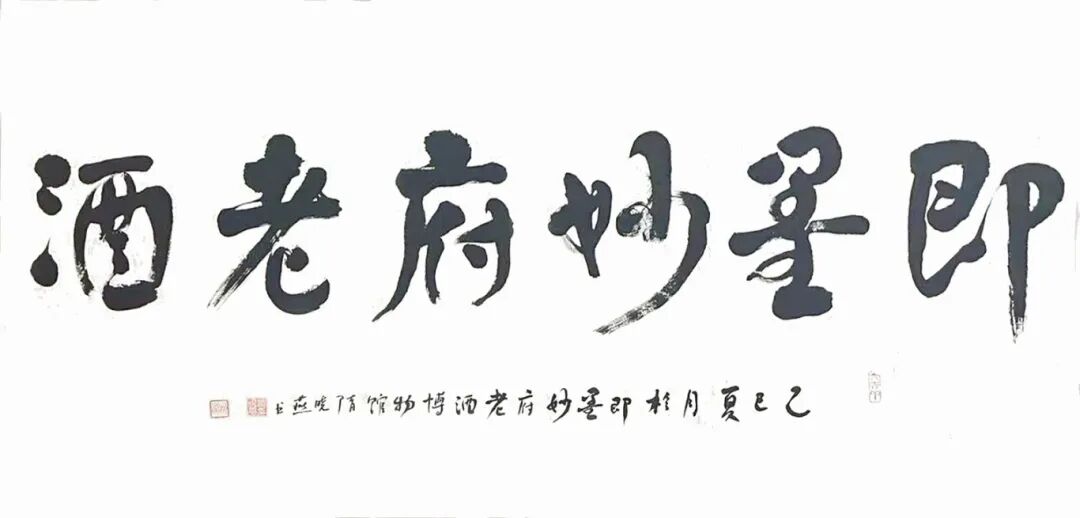 即墨妙府老酒
乙巳夏月於即墨妙府老酒博物馆隋晓燕书